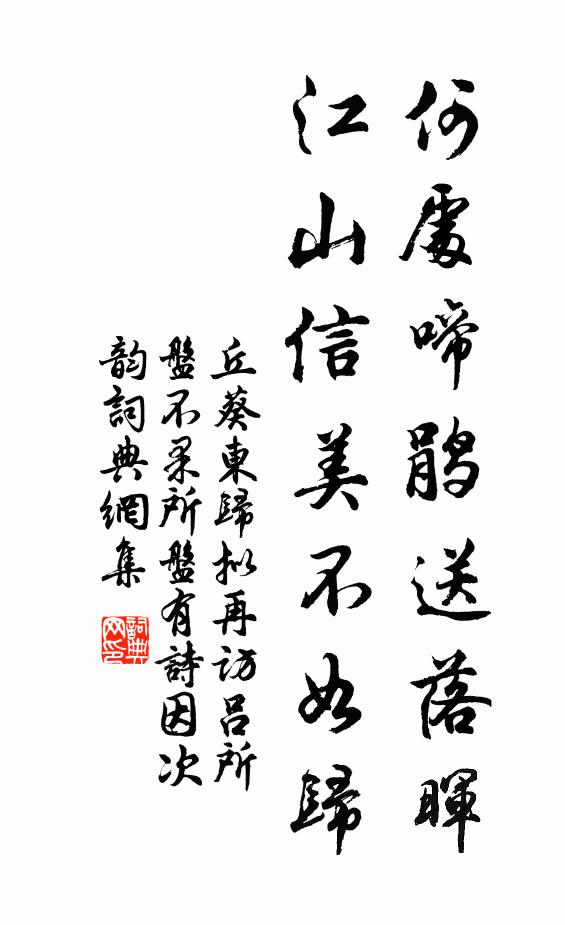 何處啼鵑送落暉
江山信美不如歸
丘葵東歸拟再访吕所
盤不果所盤有詩因次
韵詞典網集
詞典
网印